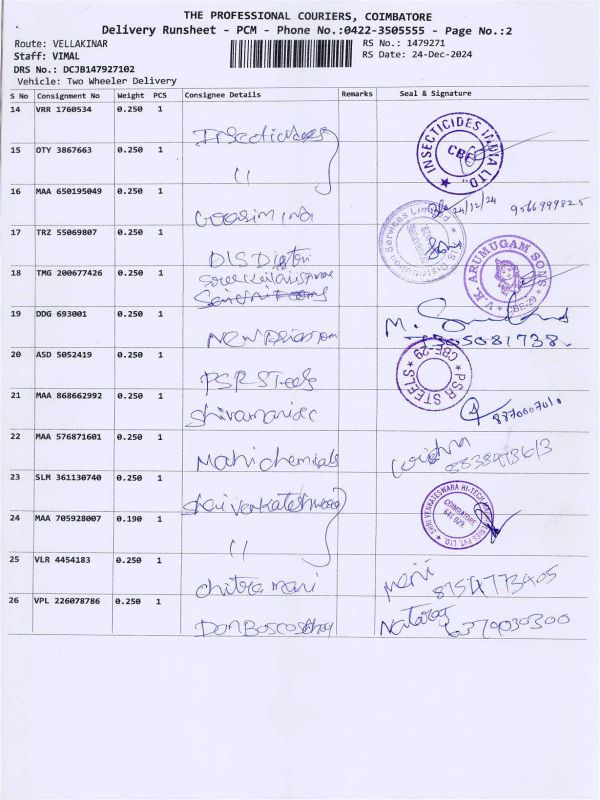 THE PROFESSIONAL COURIERS, COIMBATORE
Delivery Runsheet - PCM - Phone No.:0422-3505555 - Page No.:2
Route: VELLAKINAR RS No.: 1479271
Staff: VIMAL RS Date: 24-Dec-2024
DRS No.: DCJB147927102
Vehicle: Two Wheeler Delivery
S No Consignment No Weight PCS Consignee Details Remarks Seal & Signature
14 VRR 1760534 0.250 1 Insecticides
INSECTICIDES INDIA LTD. CBE
15 OTY 3867663 0.250 1 "
16 MAA 650195049 0.250 1 24/12/24 9566999825
17 TRZ 55069807 0.250 1 DIS
18 TMG 200677426 0.250 1
V.K. ARUMUGAM SONS CBE-29
19 DDG 693001 0.250 1 New M.
20 ASD 5052419 0.250 1 PSR Steels
PSR STEELS CBE-29
21 MAA 868662992 0.250 1 8870607010
22 MAA 576871601 0.250 1 Mahi chemicals
23 SLM 361130740 0.250 1 Shri Venkateshwara
SHRI VENKATESWARA HI-TECH COIMBATORE 641 029. PVT. LTD.
24 MAA 705928007 0.190 1 "
25 VLR 4454183 0.250 1 Chitra mani Mani 8754773405
26 VPL 226078786 0.250 1 Don Bosco Nataraj 6379030300